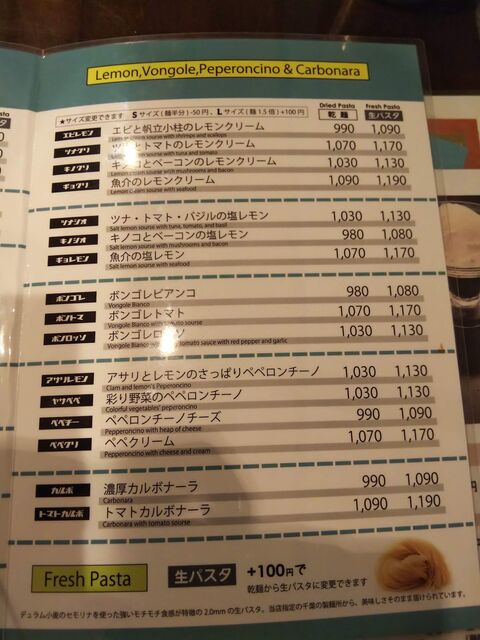 Lemon,Vongole,Peperoncino & Carbonara
★サイズ変更できます Sサイズ(麺半分)-50円、Lサイズ(麺1.5倍)+100円
Dried Pasta Fresh Pasta
乾麺 生パスタ
エビレモン エビと帆立小柱のレモンクリーム 990 1,090
Lemon cream sourse with shrimps and scallops
ツナクリ ツナとトマトのレモンクリーム 1,070 1,170
Lemon cream sourse with tuna and tomato
キノクリ キノコとベーコンのレモンクリーム 1,030 1,130
Lemon cream sourse with mushrooms and bacon
ギョクリ 魚介のレモンクリーム 1,090 1,190
Lemon cream sourse with seafood
ツナシオ ツナ・トマト・バジルの塩レモン 1,030 1,130
Salt lemon sourse with tuna, tomato, and basil
キノシオ キノコとベーコンの塩レモン 980 1,080
Salt lemon sourse with mushrooms and bacon
ギョレモン 魚介の塩レモン 1,070 1,170
Salt lemon sourse with seafood
ボンゴレ ボンゴレビアンコ 980 1,080
Vongole Bianco
ボントマ ボンゴレトマト 1,070 1,170
Vongole Bianco with tomato sourse
ボンロッソ ボンゴレロッソ 1,030 1,130
Vongole Bianco with tomato sauce with red pepper and garlic
アサリレモン アサリとレモンのさっぱりペペロンチーノ 1,030 1,130
Clam and lemon's Peperoncino
ヤサペペ 彩り野菜のペペロンチーノ 1,030 1,130
Colorful vegetables' peperoncino
ペペチー ペペロンチーノチーズ 990 1,090
Pepperoncino with heap of cheese
ペペクリ ペペクリーム 1,070 1,170
Pepperoncino with cheese and cream
カルボ 濃厚カルボナーラ 990 1,090
Carbonara
トマトカルボ トマトカルボナーラ 1,090 1,190
Carbonara with tomato sourse
Fresh Pasta 生パスタ +100円で
乾麺から生パスタに変更できます
デュラム小麦のセモリナを使った強いモチモチ食感が特徴の2.0mmの生パスタ。当店指定の千葉の製麺所から、美味しさそのまま届けられています。